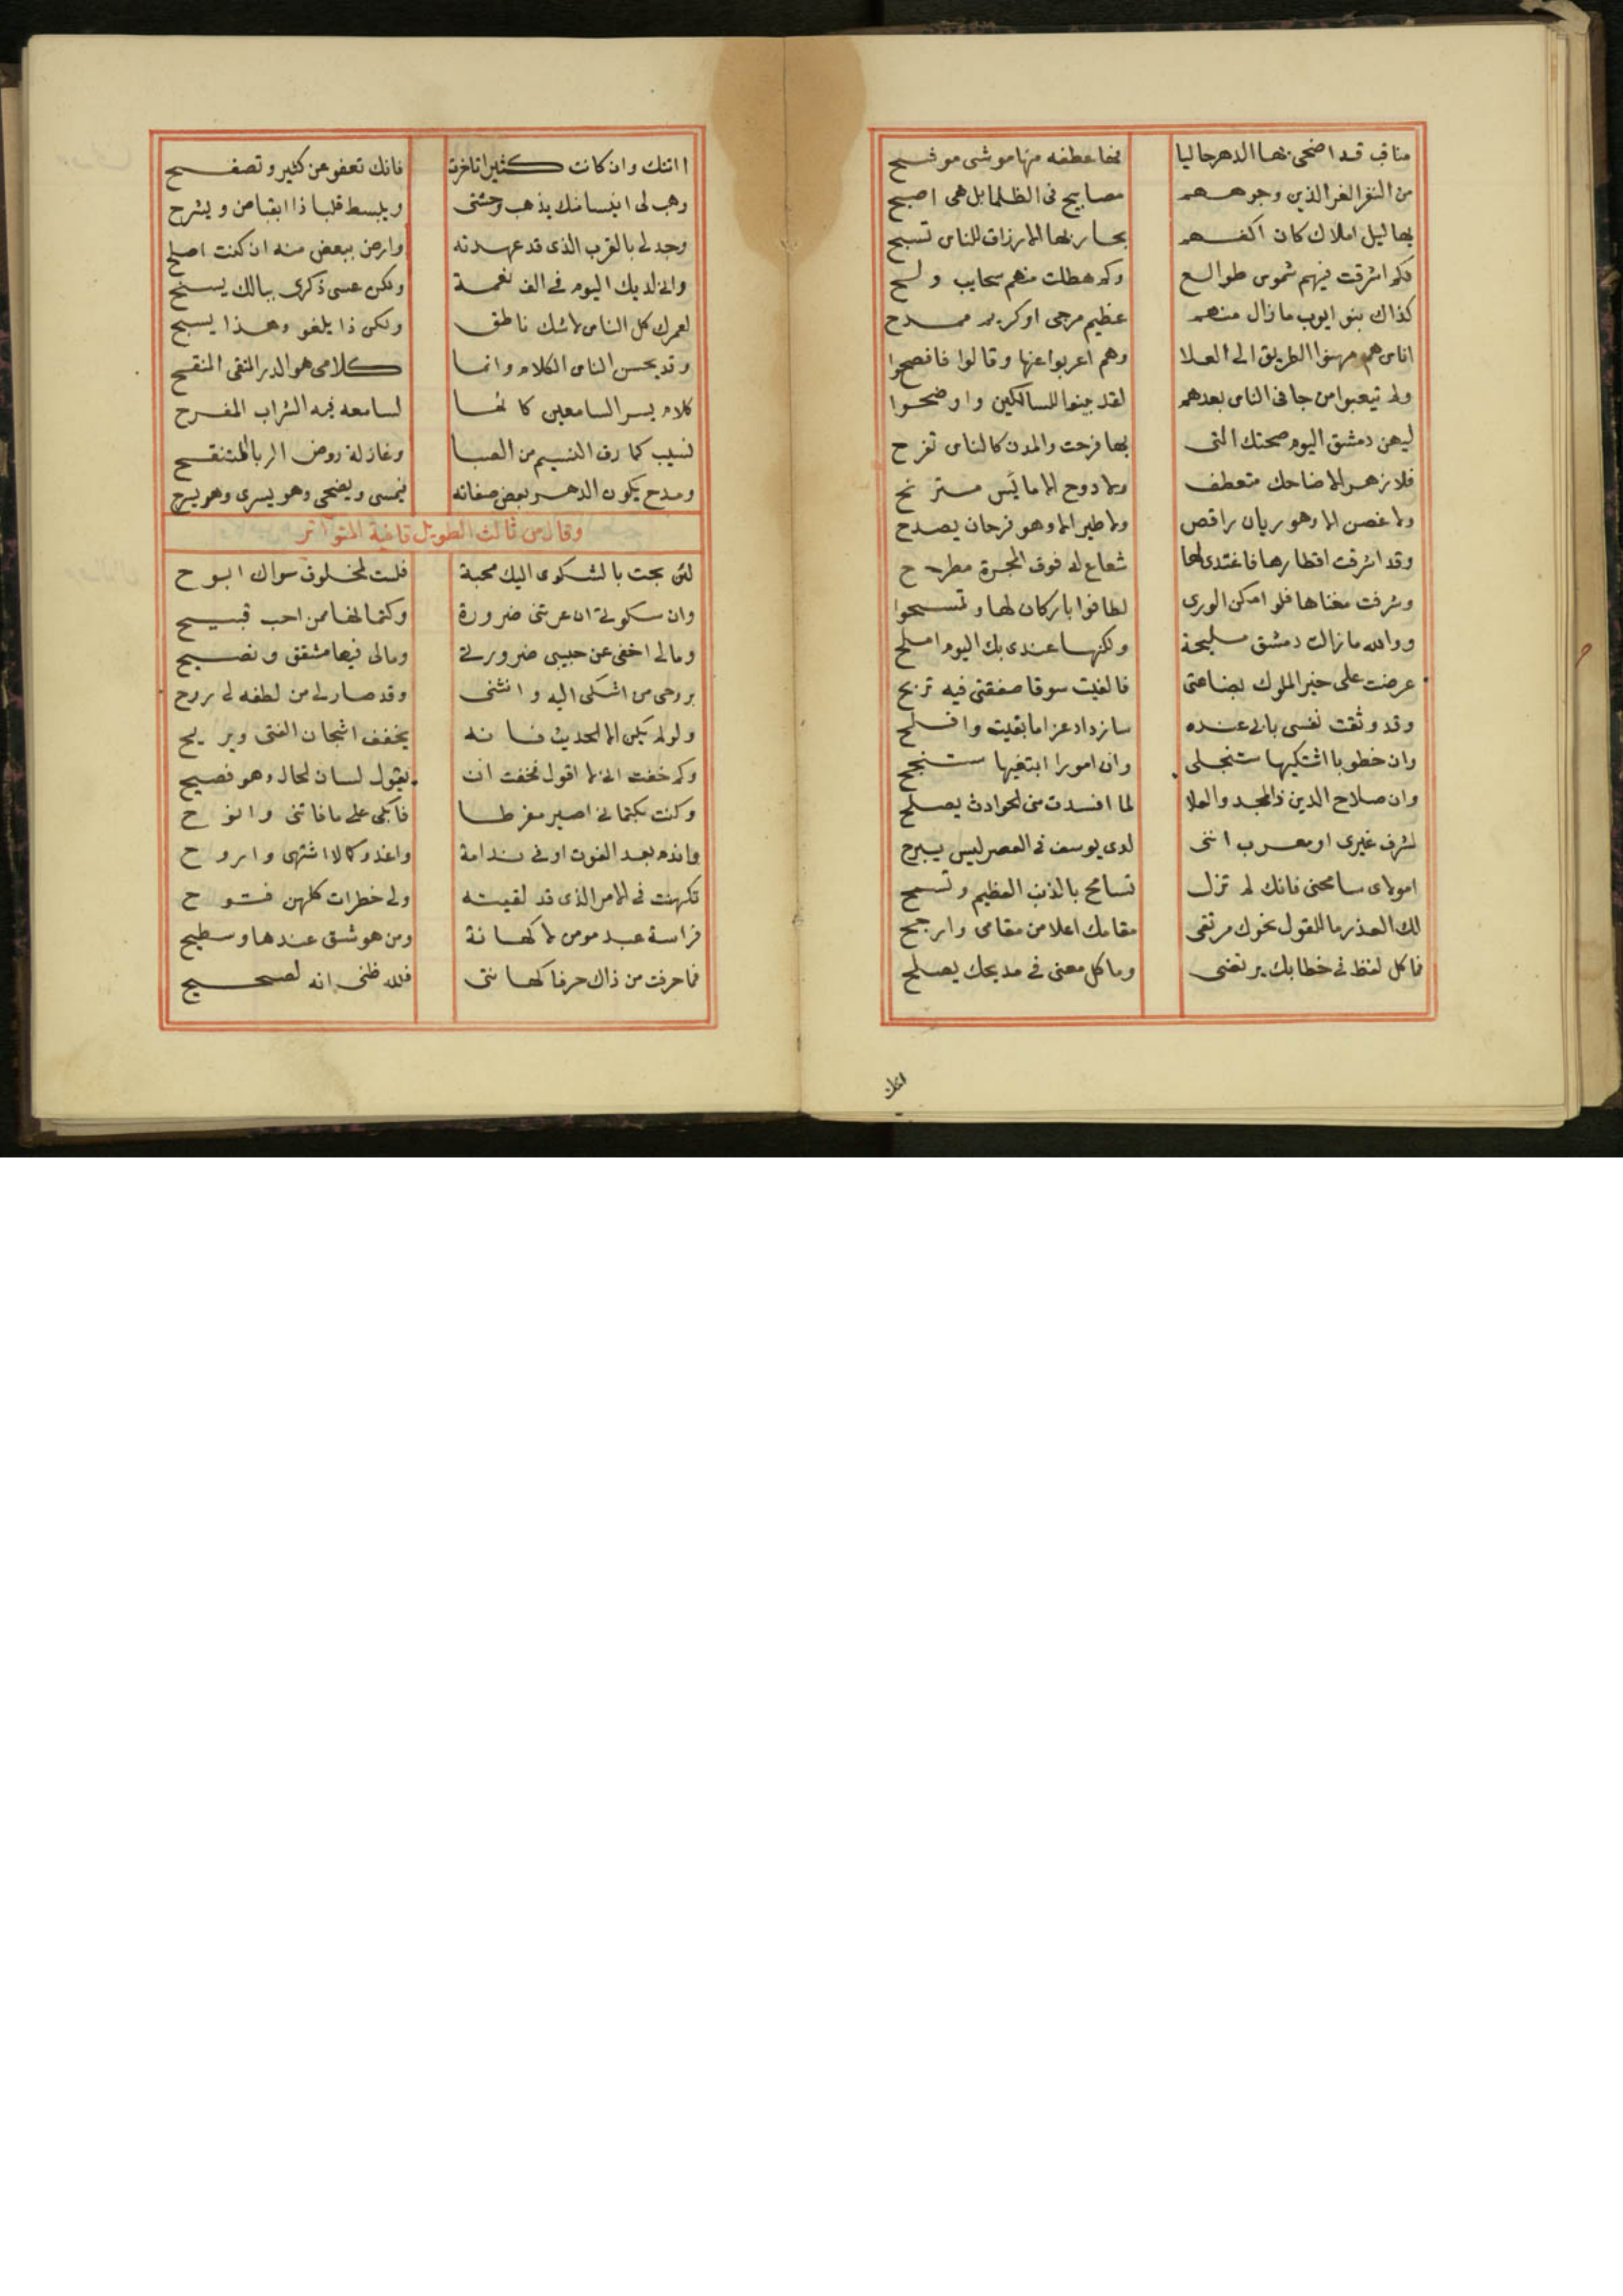 مناقب قد اضحى بها الدهر حاليا فها عطفه منها موشى موشح
من النفر الغر الذين وجوههم مصابيح فى الظلما بل هى اصبح
بهاليل املاك كان اكفهم بحار بها الارزاق للناس تسبح
فكم اشرقت فيهم شموس طوالع وكم هطلت منهم سحايب ولح
كذاك بنو ايوب مازال منهم عظيم مرجى او كريم ممدح
اناس هم سنوا الطريق الى العلا وهم اعربوا عنها وقالوا فافصحوا
ولم تيعبوا من جا فى الناس بعدهم لقد بينوا للسالكين واوضحوا
ليهن دمشق اليوم صحتك التى بها فرحت والمدن كالناس تفرح
فلا زهر الا ضاحك متعطف ولا دوح الا مائس مترنح
ولا غصن الا وهو ريان راقص ولا طير الا وهو فرحان يصدح
وقد اشرقت اقطارها فاغتدى لها شعاع له فوق المجرة مطرح
وشرفت مغناها فلو امكن الورى لطافوا باركان لها وتمسحوا
ووالله مازالت دمشق مليحة ولكنها عندى بك اليوم املح
عرضت على خير الملوك بضاعتى فالفيت سوقا صفقتى فيه تربح
وقد وثقت نفسى بانى عنده سازداد عزا ما بقيت وافلح
وان خطوبا اشتكيها ستنجلى وان امورا ابتغيها ستنجح
وان صلاح الدين ذا المجد والعلا لما افسدت منى الحوادث يصلح
لشرف غيرى او معرب اننى لدى يوسف فى العصر ليس يبرح
امولاى سامحنى فانك لم تزل تسامح بالذنب العظيم وتسمح
لك العذر ما للقول نحوك مرتقى مقامك اعلا من مقامى وارجح
فما كل لفظ فى خطابك يرتضى وما كل معنى فى مديحك يصلح
اتتك
اتتك وان كانت كثيرا تاخرت فانك تعفو عن كثير وتصفح
وهب لى ايناسا منك يذهب وحشتى ويبسط قلبا ذا انقباض ويشرح
وجد لى بالقرب الذى قد عهدته وارض ببعض منه ان كنت اصلح
وانى لديك اليوم فى الف نعمة ولكن عسى ذكرى ببالك يسنح
لعمرك كل الناس لا شك ناطق ولكن ذا يلغو وهذا يسبح
وقد يحسن الناس الكلام وانما كلامى هو الدر النقى المنقح
كلام يسر السامعين كانما لسامعه فيه الشراب المفرح
نسيب كما رق النسيم من الصبا وغازله روض الربا المتفتح
ومدح يكون الدهر بعض صفاته فيمسى ويضحى وهو يسرى وهو يسرح
وقال من ثالث الطويل قافية المتواتر
لئن بحت بالشكوى اليك محبة فلست لمخلوق سواك ابوح
وان سكوتى ان عرتنى ضرورة وكتمانها ممن احب قبيح
ومالى اخفى عن حبيبى ضرورتى ومالى فيها مشفق ونصيح
بروحى من اشكى اليه وانثنى وقد صار لى من لطفه لى روح
ولو لم يكن الا الحديث فانه يخفف اشجان الفتى ويريح
وكم خفت انى لا اقول فخفت ان يقول لسان الحال وهو فصيح
وكنت بكتمانى اصير مفرطا فابكى على ما فاتنى وانوح
واندم بعد الفوت اوفى ندامة واغدو كما لا اشتهى واروح
تكهنت فى الامر الذى قد لقيته ولى خطرات كلهن فتوح
فراسة عبد مومن لا كهانة ومن هو شق عندها وسطيح
فما حرفت من ذاك حرفا كهانتى فلله ظنى انه لصحيح